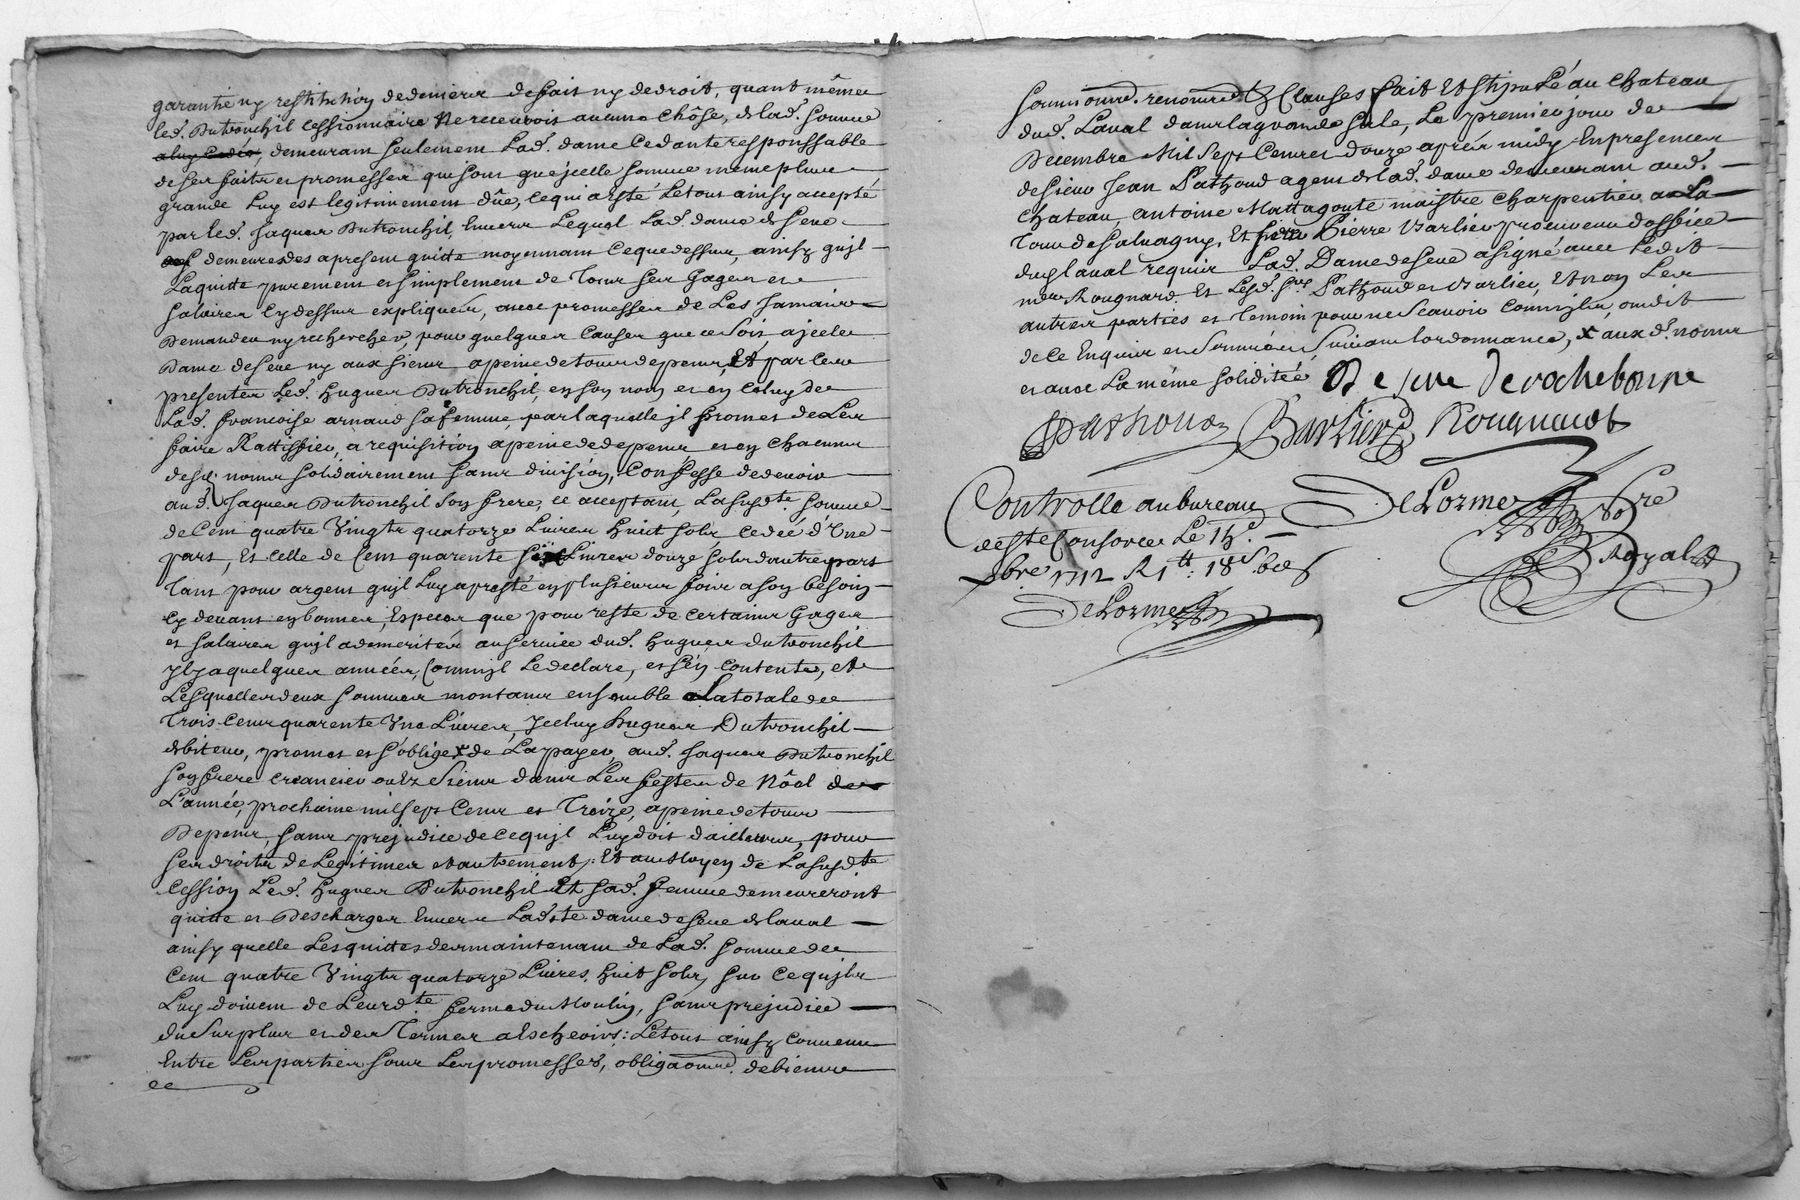 garantie ny restitution de deniers de fait ny de droit, quant même
led. Dutronchil cessionnaire ne recevroit aucune chôse, de lad. somme
a luy cedée, demeurant seulement lad. dame cedante responssable
de ses faits et promesses qui sont que jcelle somme mesme plus
grande luy est legitimement dûe, ce qui a esté le tout ainsy accepté
par led. Jaques Dutronchil, envers lequel lad. dame de Seve
demeure des apresent quitte moyennant ce que dessus, ainsy qu'jl
la quitte purement et simplement de tous ses gages et
salaires cy dessus expliqués, avec promesses de les jamais
demander ny rechercher, pour quelques causes que ce soit, a jcelle
Dame de Seve ny aux siens a peine de tous depens, Et par ces
presentes led. Hugues Dutronchil, en son nom et en celuy de
lad. francoise arnaud sa femme, par laquelle jl promet de les
faire Rattiffier, a requisition a peine de depens, et en chacun
desd. noms solidairement sans division, Confesse de devoir
aud. Jaques Dutronchil son frere, ce acceptant, la susdte. somme
de Cent quatre Vingts quatorze Livres huit sols, cedée d'Une
part, Et celle de Cent quarente six Livres douze sols d'autre part
tant pour argent qu'jl luy a presté en plusieurs fois a son besoin
cy devant en bonnes Especes que pour reste de certains gages
et salaires qu'jl a demerités au service dud. hugues dutronchil
jl y a quelques années, Comm'jl le declare, et s'en contente, et
lesquelles deux sommes montants ensemble a la totale de
trois cents quarente Une Livres, jceluy hugues Dutronchil
debiteur, promet et s'oblige x de la payer, aud. Jaques Dutronchil
son frere creancier ou ez siens dans les festes de Nôel de
L'année, prochaine mil sept Cents et Treize, a peine de tous
Depens, sans prejudice de ce qu'jl luy doit d'ailleurs, pour
ses droits de Legitimes et autrement; Et au Moyen de la susdte
cession led. hugues Dutronchil Et sad. femme demeureront
quitte et Descharges Envers ladste dame de seve de laval
ainsy quelle les quittes des maintenant de lad. somme de
Cent quatre Vingts quatorze Livres, huit sols, sur ce qu'jls
luy doivent de leurdte. ferme du Moulin, sans prejudice
du surplus et des Termes a Escheoirs: le tout ainsy convenu
Entre les parties sous les promesses, obligaons. de biens
&c
soumons. renons. & Clauses fait Et stipulé au Chateau
dud. Laval dans la grande sale, Le premier jour de
Decembre Mil sept Cents et douze aprés midy En presence
de sieur Jean Pathoud agent de lad. dame demeurant aud.
Chateau, antoine Mattagoute maistre charpentier a La
Tour de salvagny, Et Pierre Varlier d'office
dud laval requis lad. Dame de seve a signé avec ledit
me Rougnard. Et lesd. srs Pathoud et Varlier, Et non les
autres parties et temoin pour ne scavoir comm'jls, ont dit
de ce Enquis et sommés suivant lordonnance, x aux d. noms
et avec la même soliditée De seve de rochebonne
Pathoud Barlier Rougnard
Controlle au bureau
DeLorme Nore
Royal
xbre 1712 R 1tt: 18s.
DeLorme